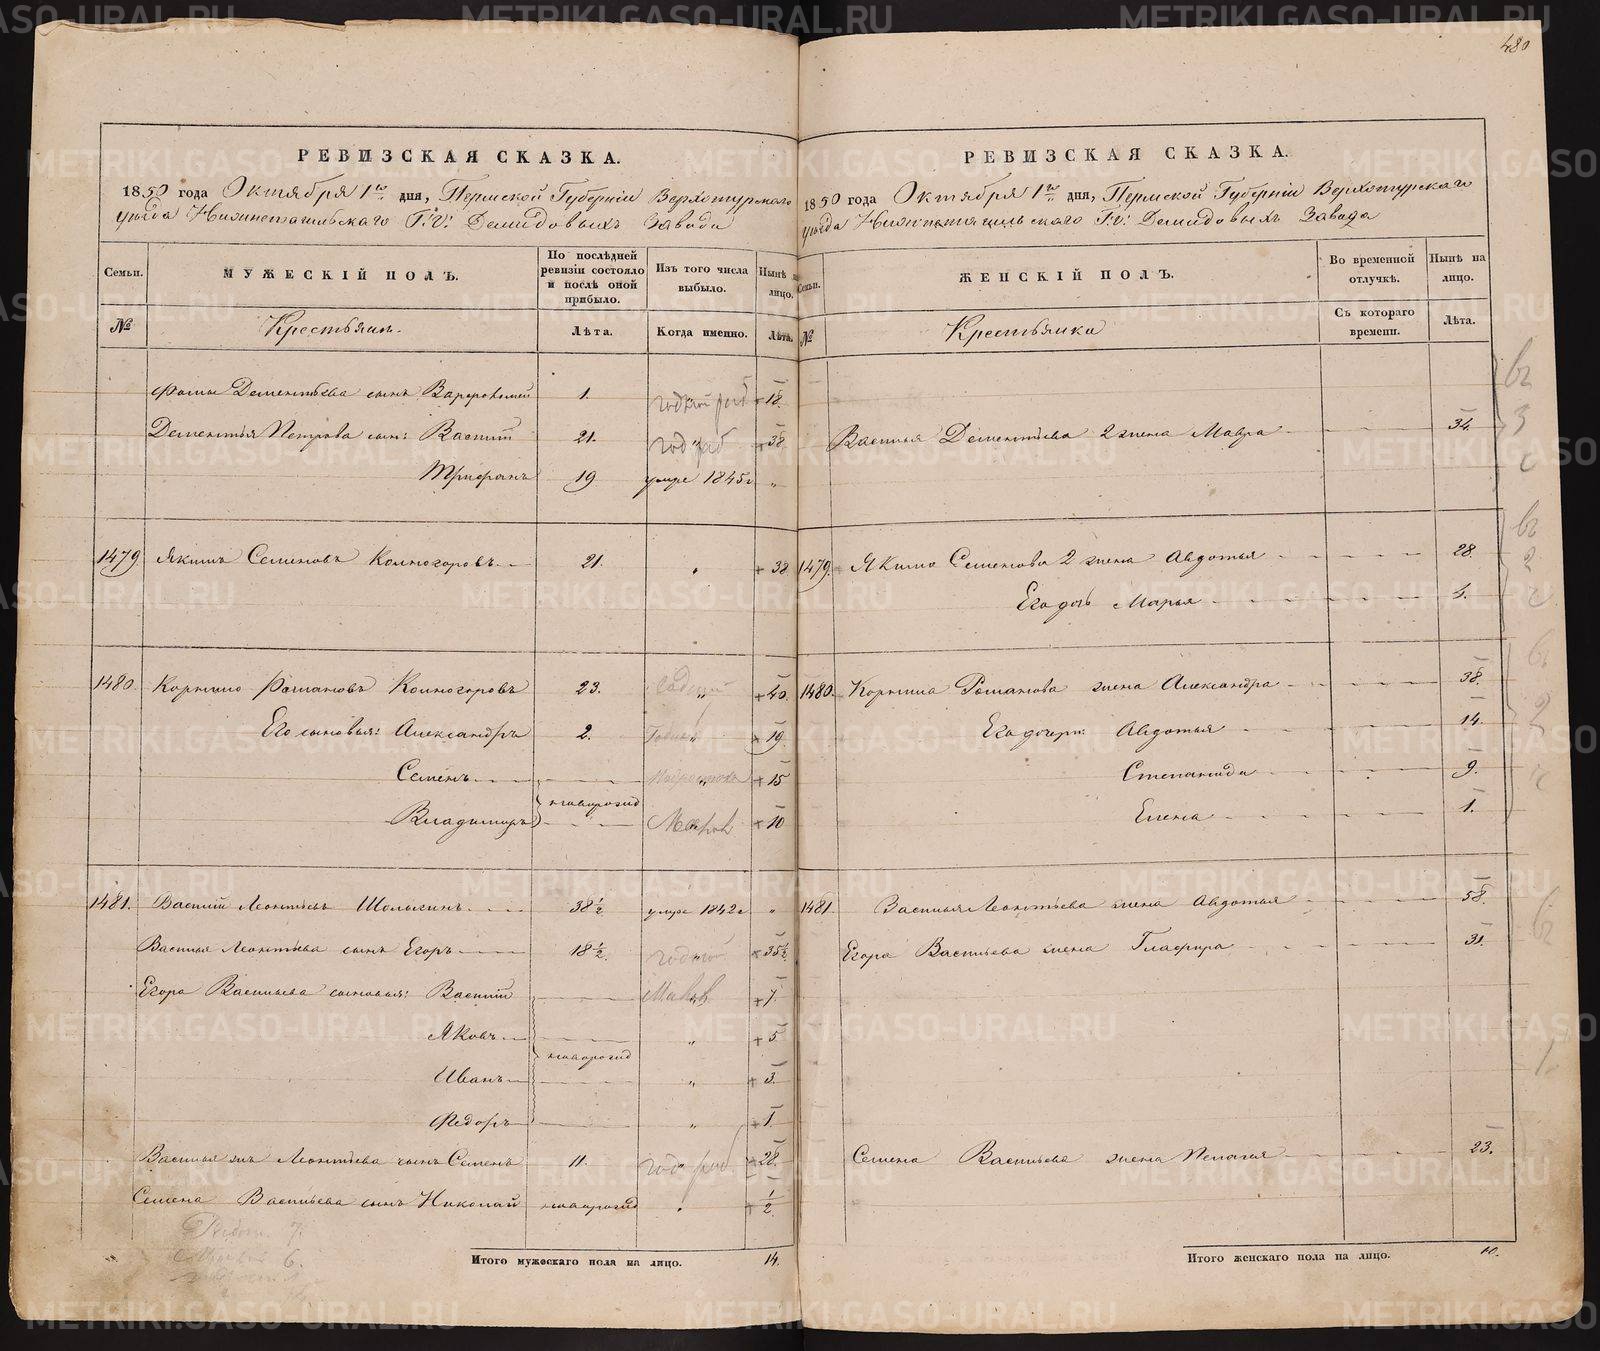 480
РЕВИЗСКАЯ СКАЗКА.
1850 года Октября 1го дня, Пермской Губерніи Верхотурскаго
уѣзда Нижнетагильскаго Г.г. Демидовыхъ Завода
Семьи. МУЖЕСКІЙ ПОЛЪ. По послѣдней ревизіи состояло и послѣ оной прибыло. Изъ того числа выбыло. Нынѣ на лицо.
№ Крестьянъ. Лѣта. Когда именно. Лѣта.
Фомы Дементьева сынъ Варфоломей 1. 18.
Дементья Петрова сын: Василій 21. 38.
Трифонъ 19 умре 1845 г "
1479. Якимъ Семеновъ Комногоровъ 21. " 38.
1480. Корнило Романовъ Комногоровъ 23. " 40.
Его сыновья: Александръ 2. " 19.
Семенъ " 15
новорожд
Владимиръ 10
1481. Василій Леонтьевъ Шолыгинъ 38½ умре 1842 г "
Василья Леонтьева сынъ Егоръ 18½. годной 35½.
Егора Васильева сыновья: Василій " 7.
Яковъ " 5.
новорожд
Иванъ " 3.
Федоръ " 1.
Василья жъ Леонтьева сынъ Семенъ 11. 28.
Семена Васильева сынъ Николай новорожд " ½
Итого мужескаго пола на лицо. 14.
РЕВИЗСКАЯ СКАЗКА.
1850 года Октября 1го дня, Пермской Губерніи Верхотурскаго
уѣзда Нижнетагильскаго Г.г. Демидовыхъ Завода
Семьи. ЖЕНСКІЙ ПОЛЪ. Во временной отлучкѣ. Нынѣ на лицо.
№ Крестьянка Съ котораго времени. Лѣта.
Василья Дементьева 2 жена Мавра 34.
1479. Якима Семенова 2 жена Авдотья 28.
Его дочь Марья
1480. Корнила Романова жена Александра 38.
Его дочери: Авдотья 14.
Степанида 9.
Елена 1.
1481. Василья Леонтьева жена Авдотья 58.
Егора Васильева жена Глафира 31.
Семена Васильева жена Пелагея 23.
Итого женскаго пола на лицо. 10.
METRIKI.GASO-URAL.RU